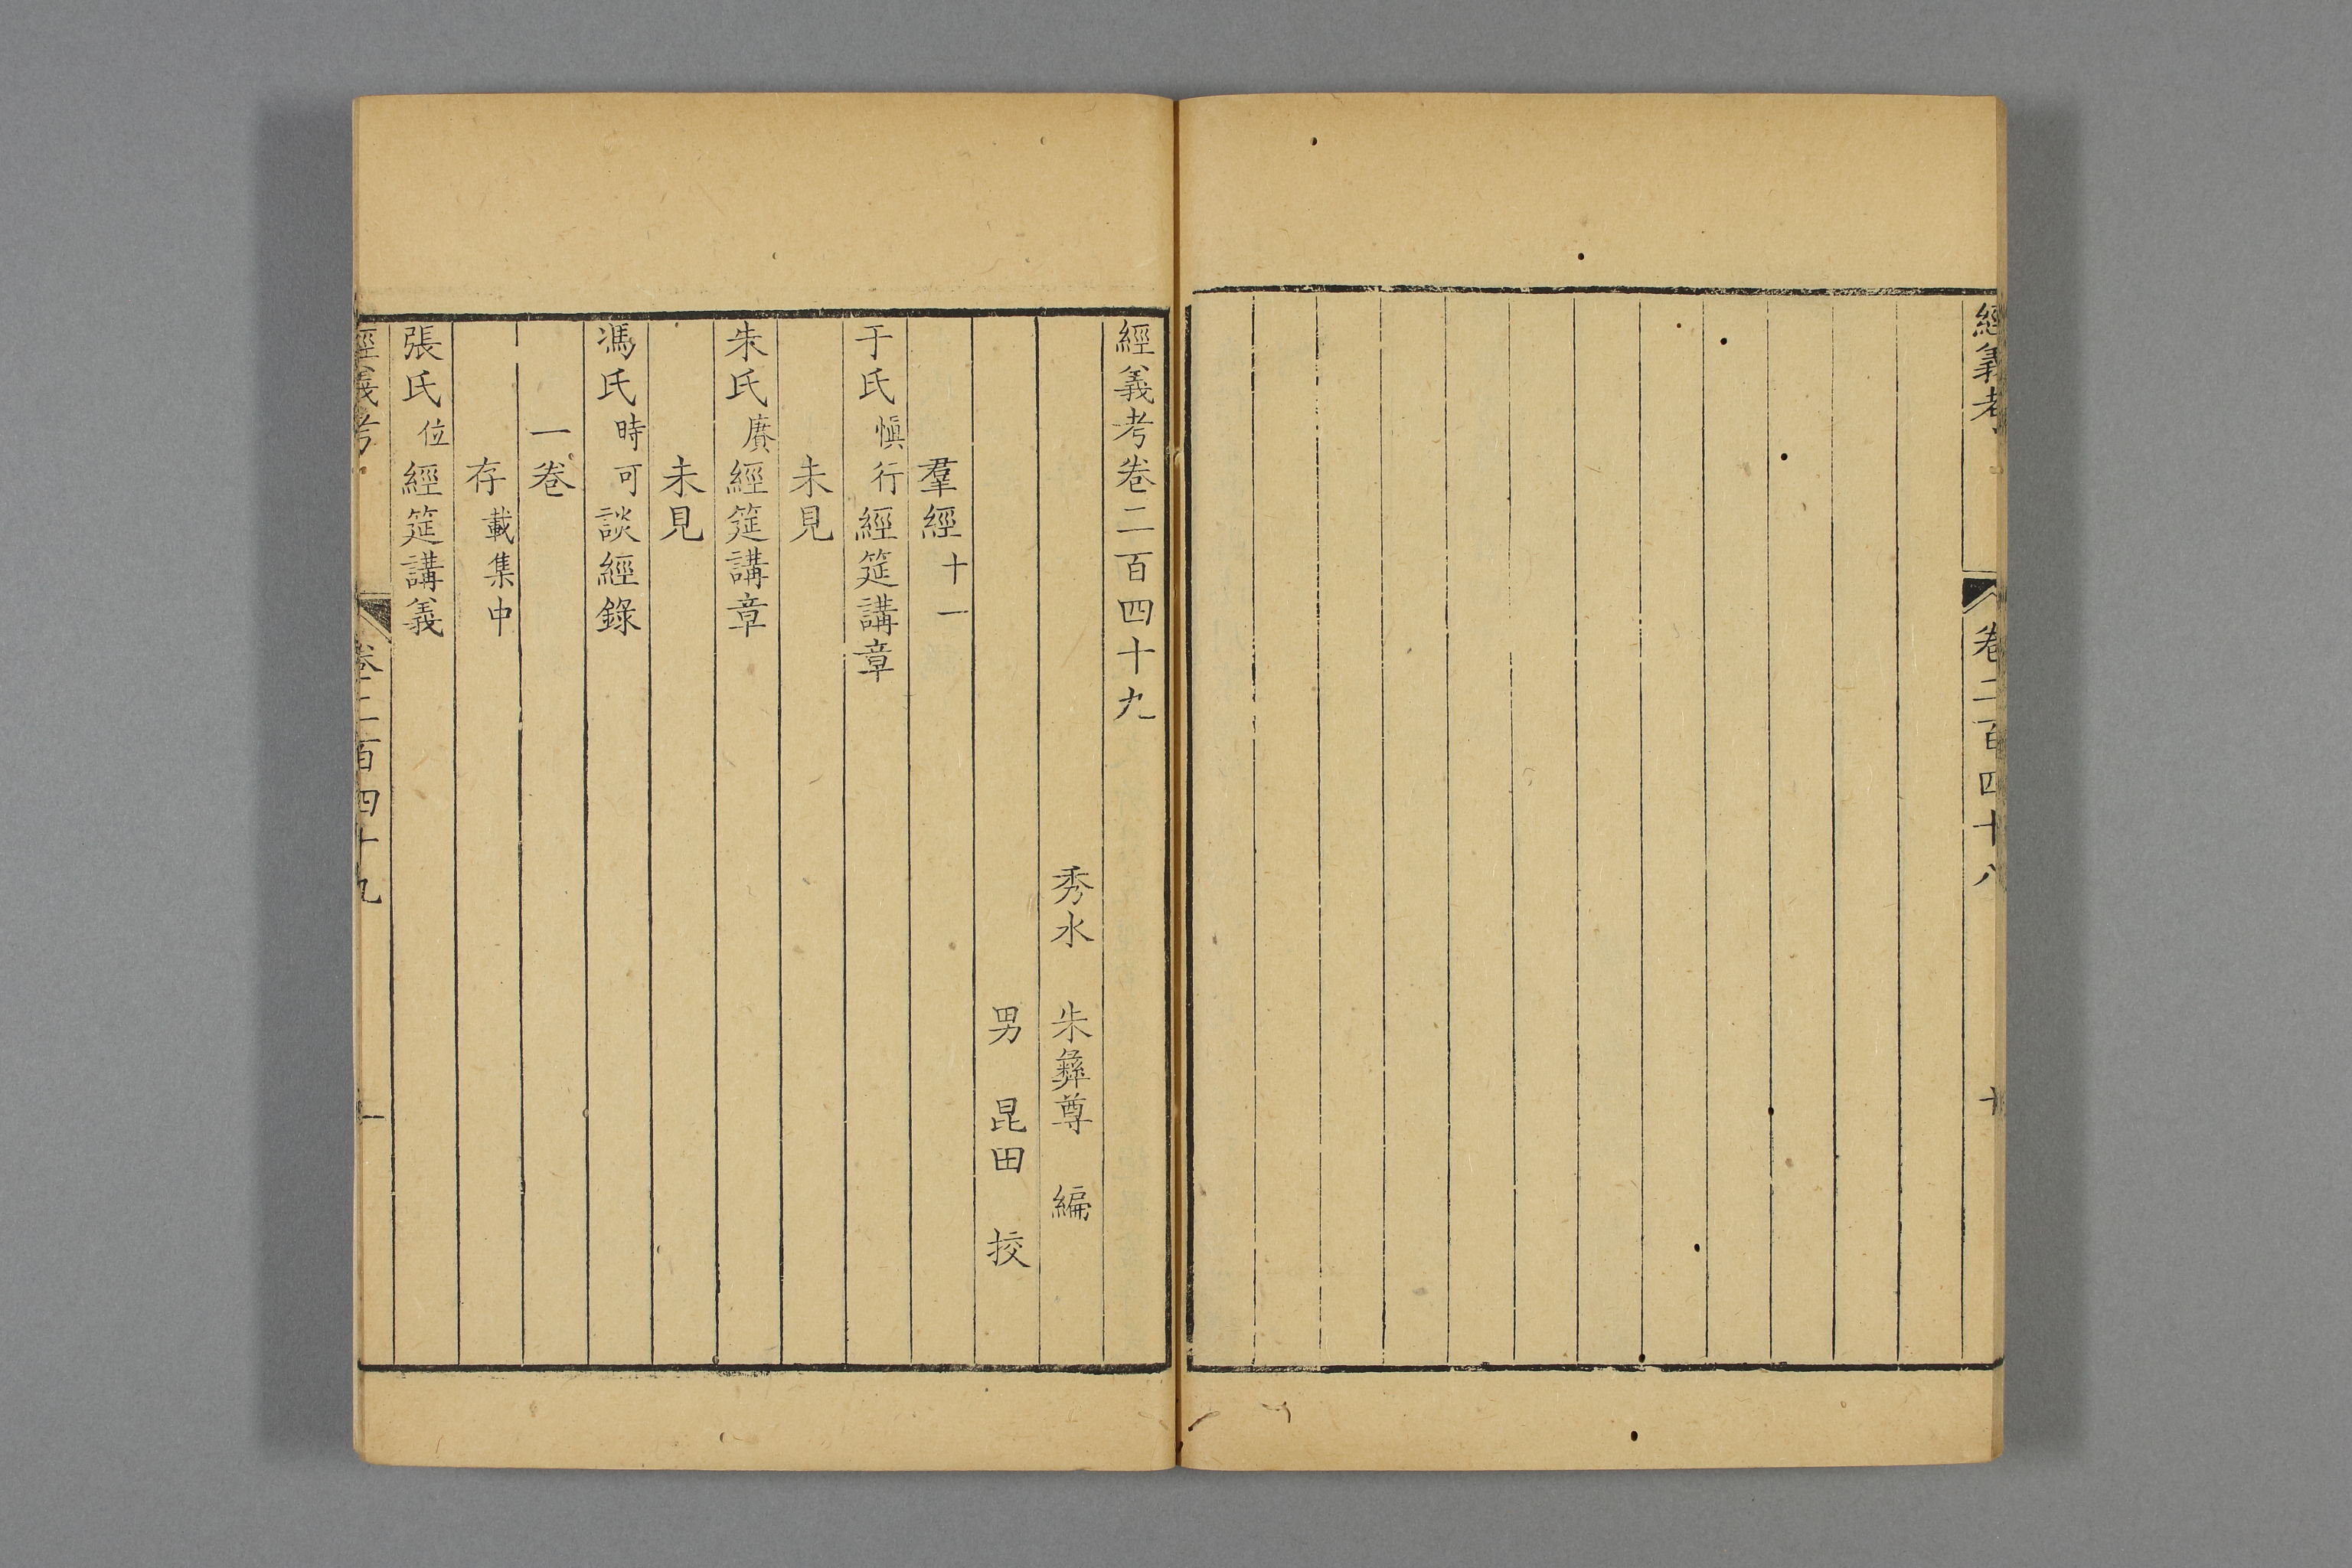 經義考
卷二百四十八
十
經義考卷二百四十九
秀水 朱彝尊 編
男 昆田 挍
羣經十一
于氏慎行經筵講章
未見
朱氏賡經筵講章
未見
馮氏時可談經錄
一卷
存載集中
張氏位經筵講義
經義考
卷二百四十九
一